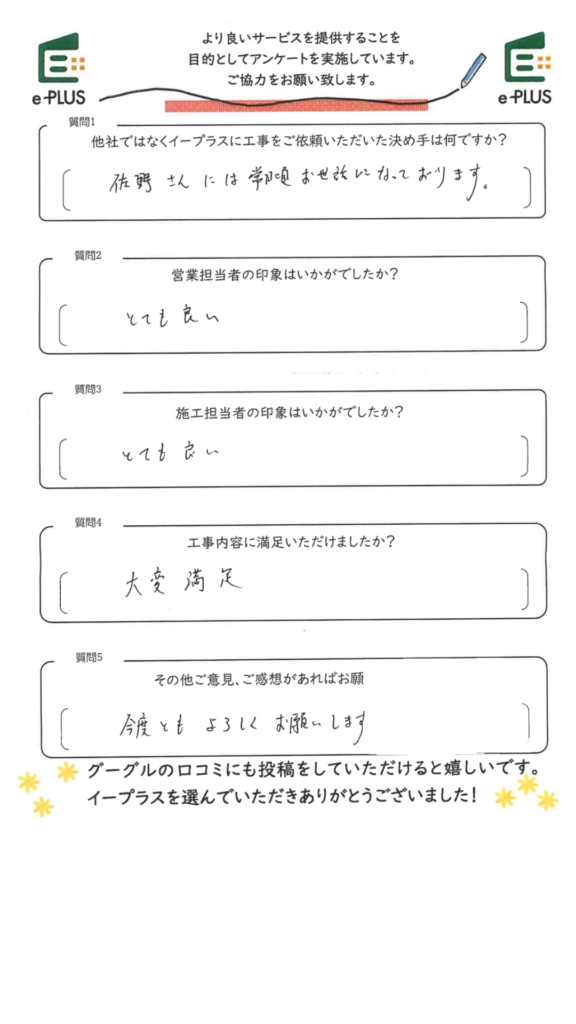 より良いサービスを提供することを
目的としてアンケートを実施しています。
ご協力をお願い致します。
e-PLUS
e-PLUS
質問1
他社ではなくイープラスに工事をご依頼いただいた決め手は何ですか?
佐野さんには常日頃お世話になっております。
質問2
営業担当者の印象はいかがでしたか?
とても良い
質問3
施工担当者の印象はいかがでしたか?
とても良い
質問4
工事内容に満足いただけましたか?
大変満足
質問5
その他ご意見、ご感想があればお願
今度ともよろしくお願いします
グーグルの口コミにも投稿をしていただけると嬉しいです。
イープラスを選んでいただきありがとうございました!